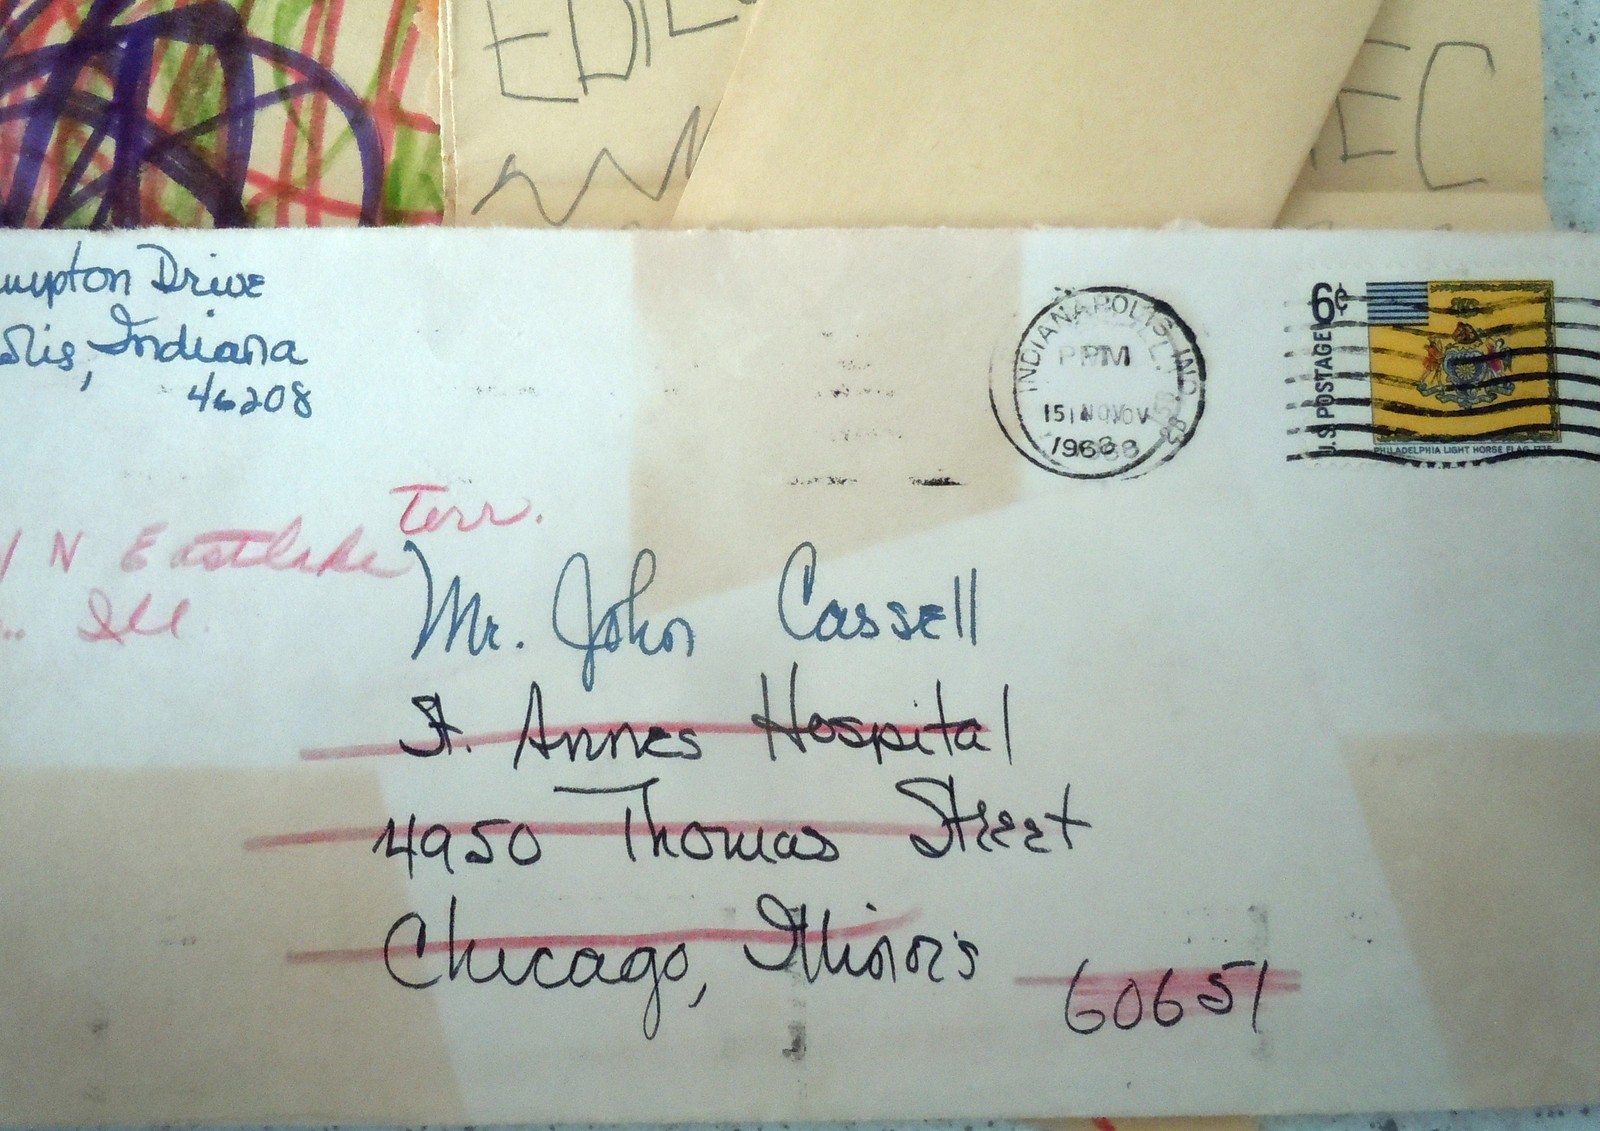 EDIE
EC
umpton Drive
olis, Indiana
46208
INDIANAPOLIS, IND
PM
15 NOV
1968
6¢
U.S. POSTAGE
PHILADELPHIA LIGHT HORSE FLAG
Terr.
N Eastlake
Ill.
Mr. John Cassell
St. Annes Hospital
4950 Thomas Street
Chicago, Illinois
60651